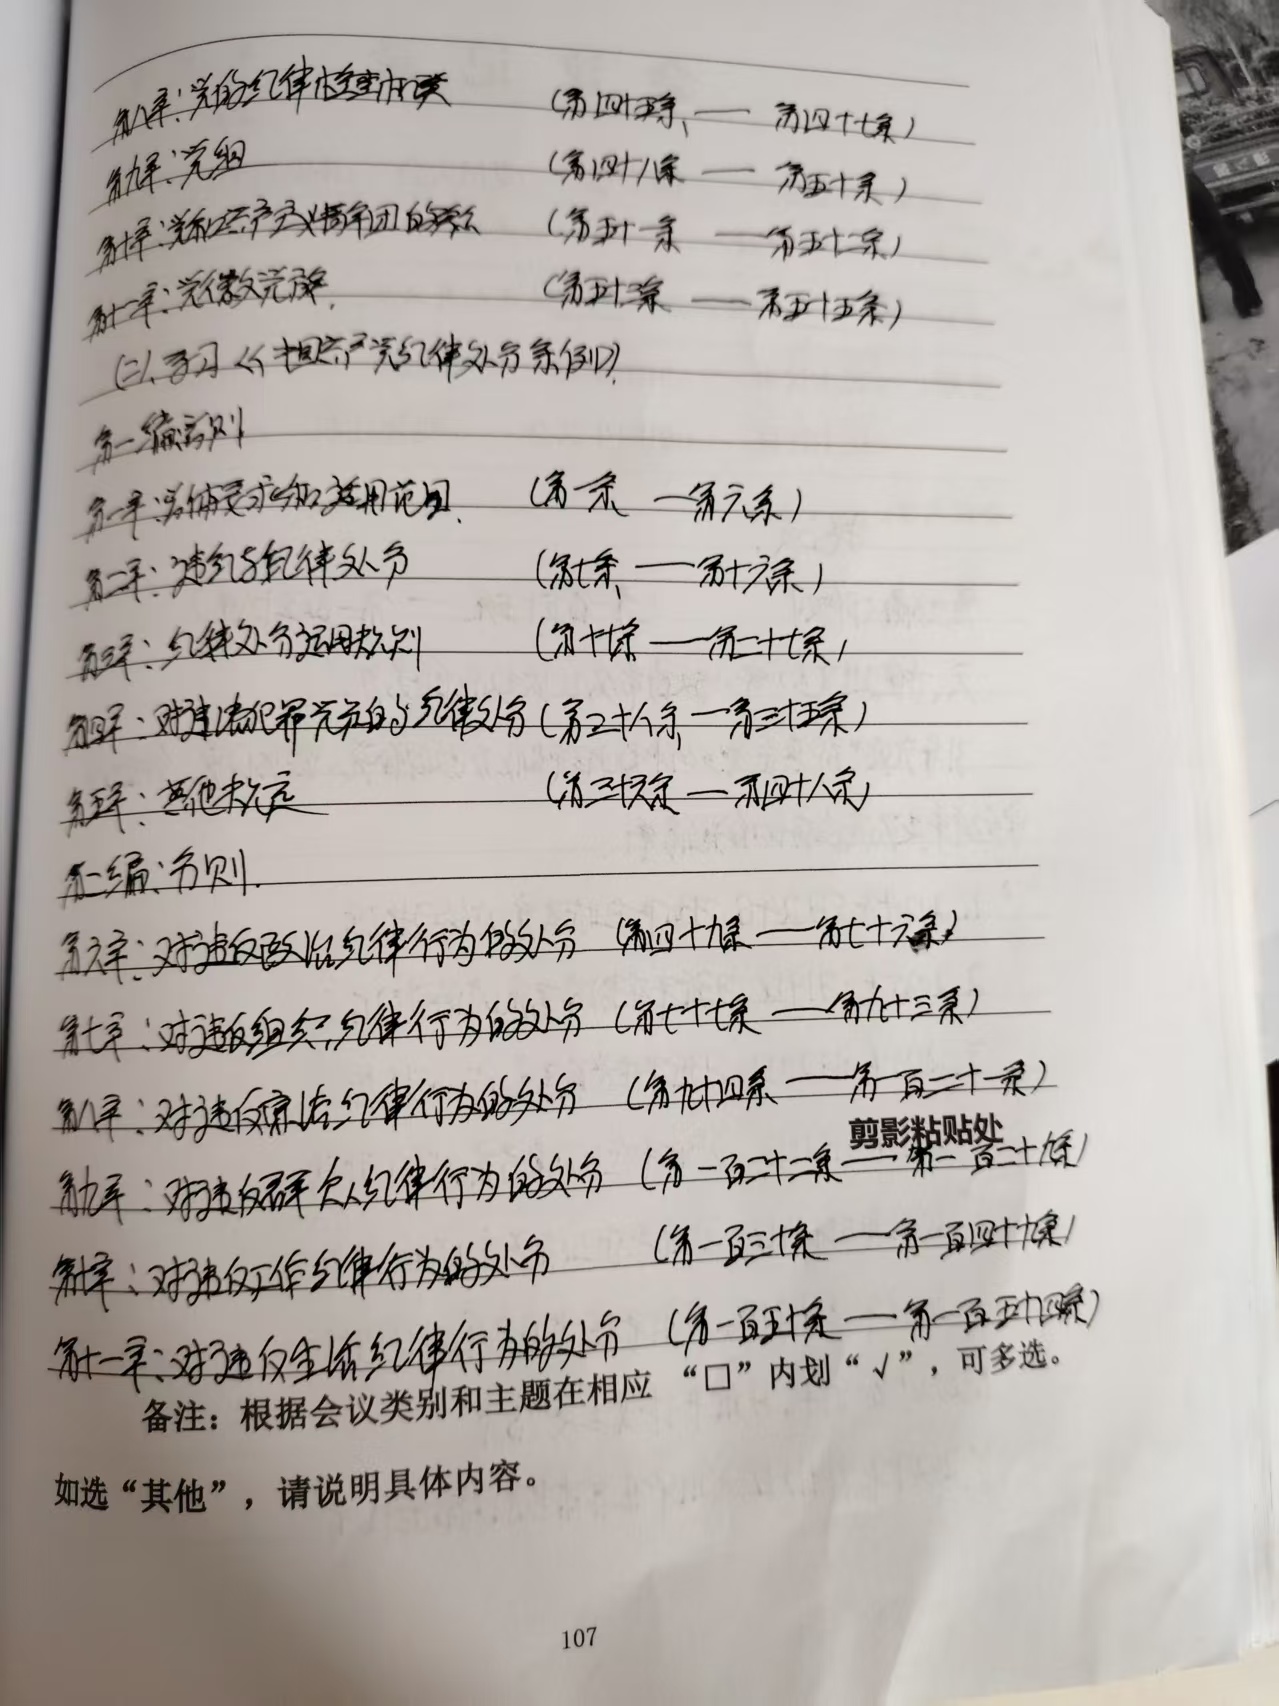 第八章：党的纪律检查机关 （第四十五条、——第四十七条）
第九章：党组 （第四十八条——第五十条）
第十章：党和共产主义青年团的关系 （第五十一条——第五十二条）
第十一章：党徽党旗. （第五十三条——第五十五条）
(二)、学习《中国共产党纪律处分条例》.
第一编：总则
第一章：总体要求和适用范围. （第一条—第六条）
第二章：违纪与纪律处分 （第七条——第十六条）
第三章：纪律处分运用规则 （第十七条——第二十七条）
第四章：对违法犯罪党员的纪律处分（第二十八条—第三十五条）
第五章：其他规定 （第三十六条—第四十八条）
第二编：分则.
第六章：对违反政治纪律行为的处分 （第四十九条——第七十六条）
第七章：对违反组织纪律行为的处分 （第七十七条——第九十三条）
第八章：对违反廉洁纪律行为的处分 （第九十四条——第一百二十一条）
剪影粘贴处
第九章：对违反群众纪律行为的处分 （第一百二十二条——第一百二十九条）
第十章：对违反工作纪律行为的处分 （第一百三十条——第一百四十九条）
第十一章：对违反生活纪律行为的处分 （第一百五十条——第一百五十四条）
备注：根据会议类别和主题在相应“□”内划“√”，可多选。
如选“其他”，请说明具体内容。
107